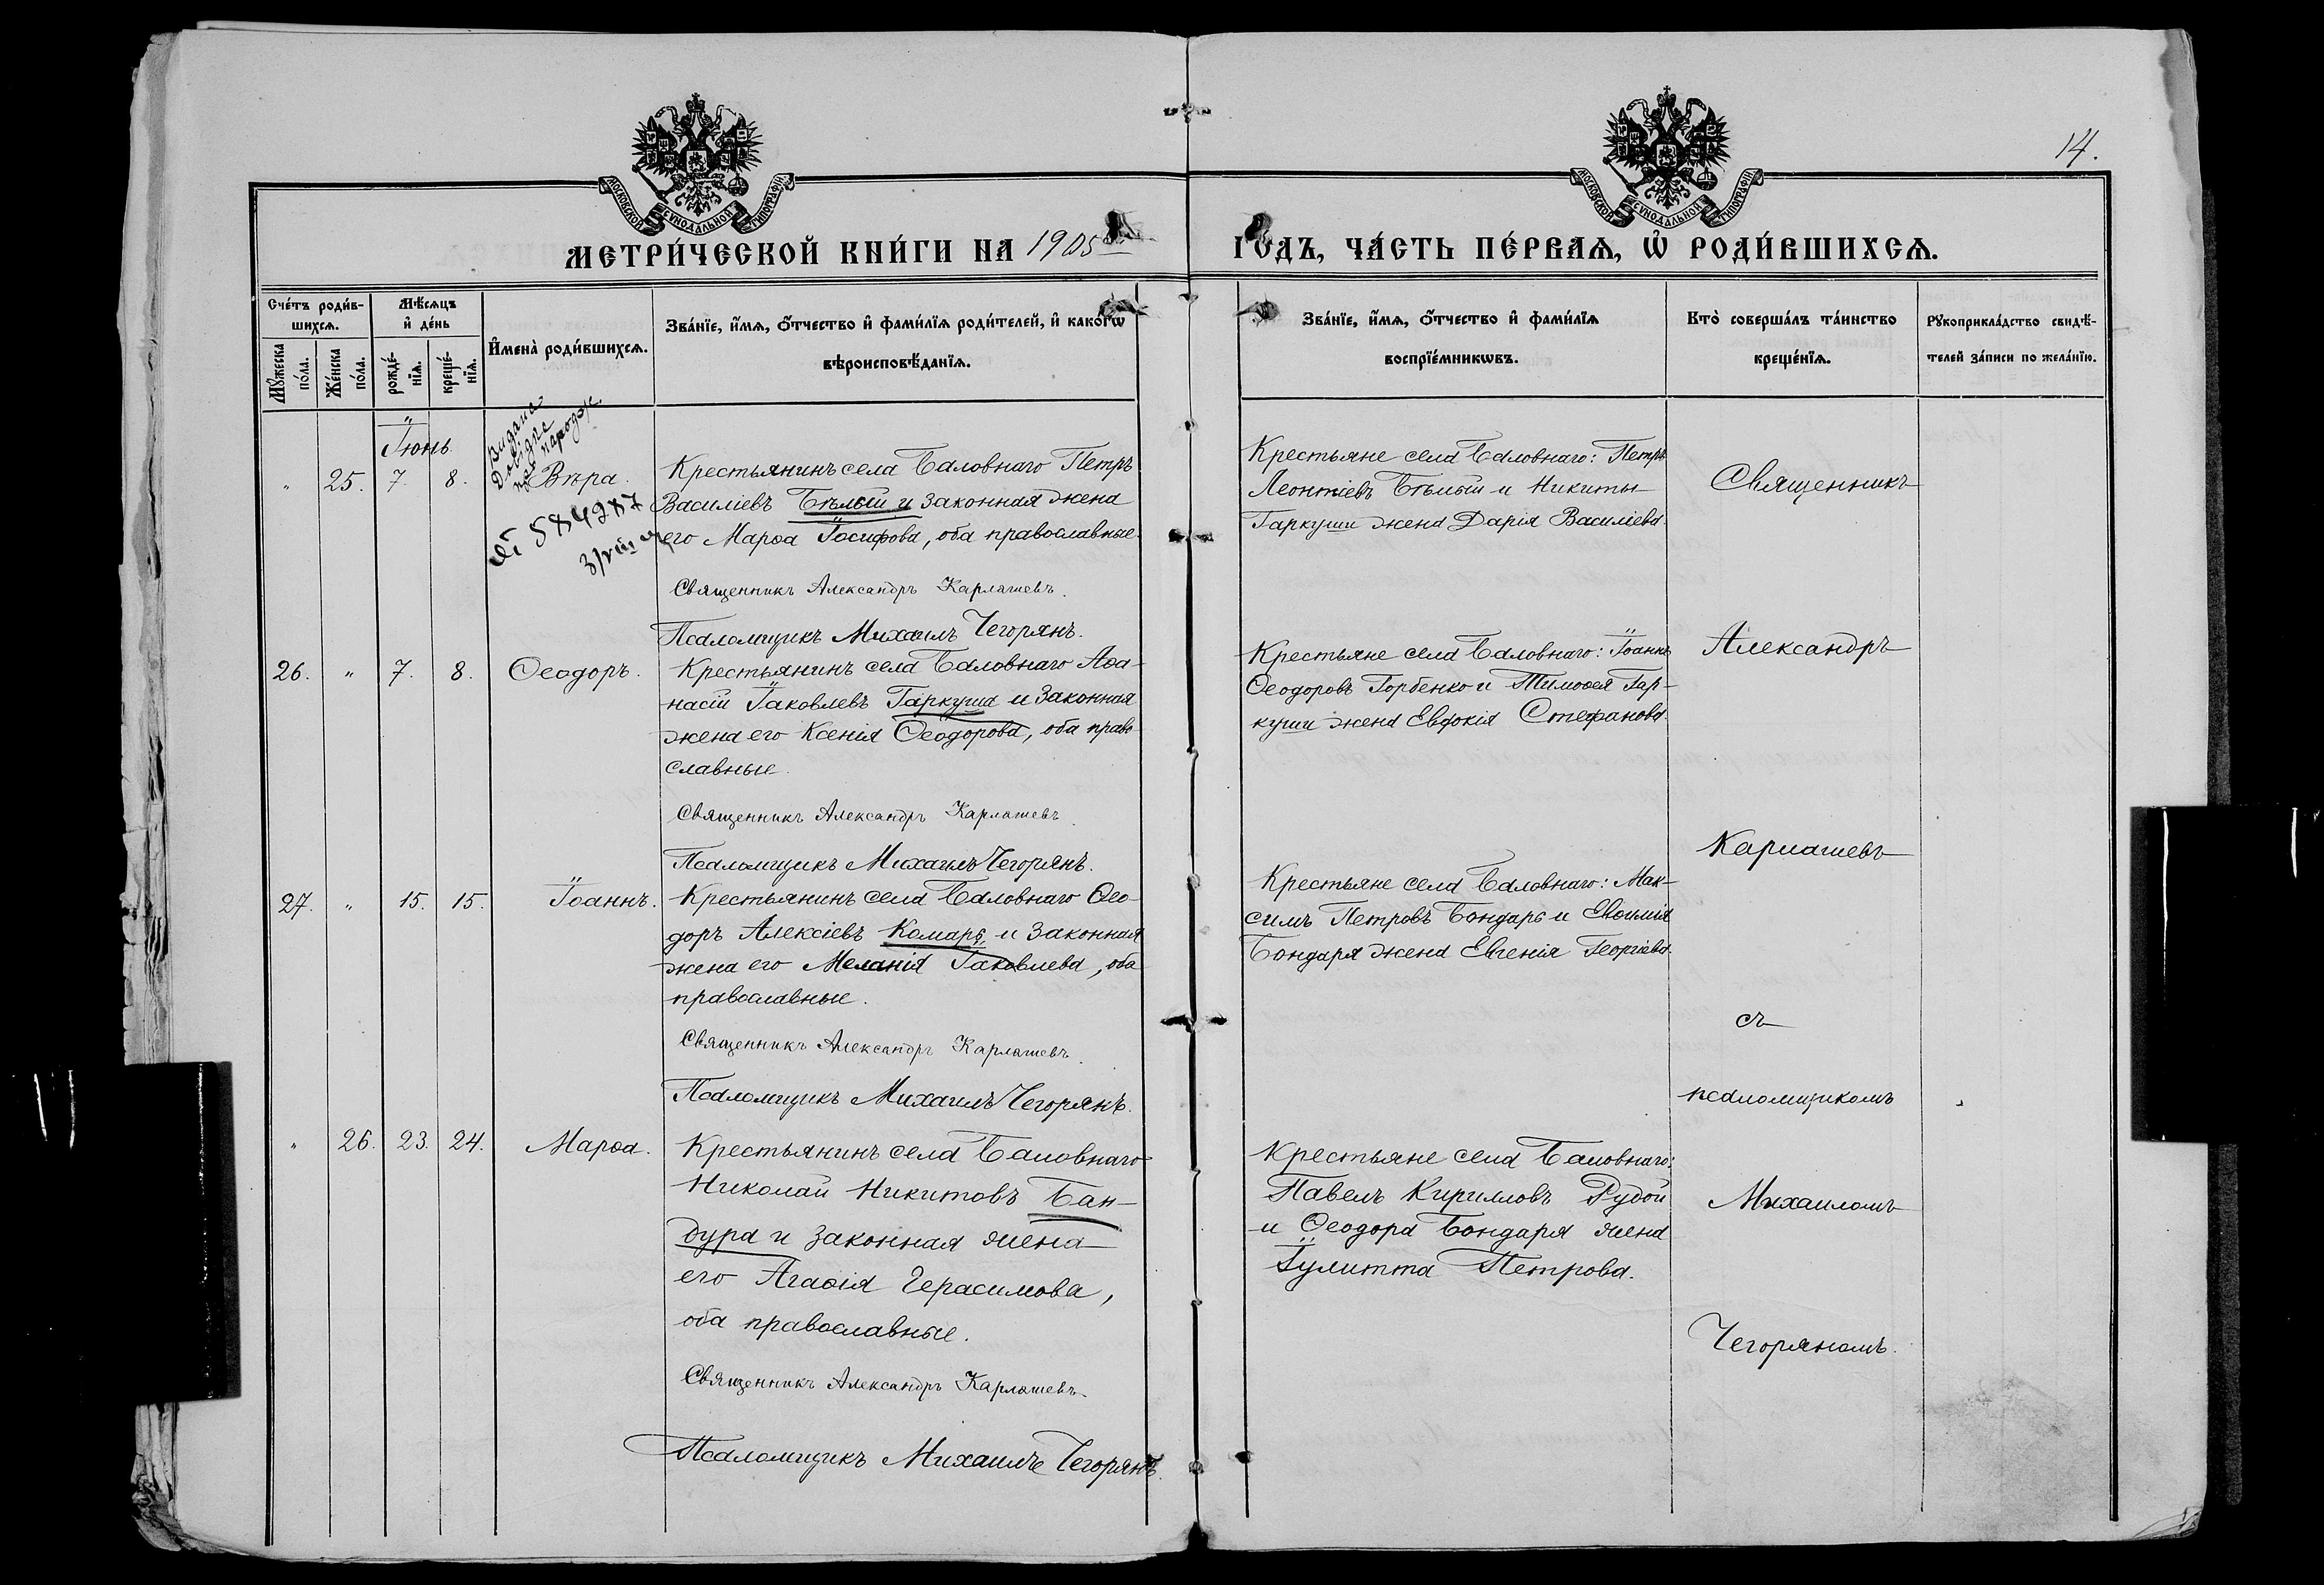 14.
МОСКОВСКОЙ СУНОДАЛЬНОЙ ТИПОГРАФІИ
МОСКОВСКОЙ СУНОДАЛЬНОЙ ТИПОГРАФІИ
МЕТРИ́ЧЕСКОЙ КНИ́ГИ НА 1905
ГОДЪ, ЧА́СТЬ ПЕ́РВАѦ, Ѡ҆ РОДИ́ВШИХСѦ.
Сче́тъ роди́в-
шихсѧ.
Мꙋ́жеска
по́ла.
Же́нска
по́ла.
Мѣ́сѧцъ
и҆ де́нь
рожде́-
нїѧ.
креще́-
нїѧ.
И҆мена̀ роди́вшихсѧ.
Зва́нїе, и҆́мѧ, ѻ҆́тчество и҆ фами́лїѧ роди́телей, и҆ како́гѡ
вѣроисповѣ́данїѧ.
Зва́нїе, и҆́мѧ, ѻ҆́тчество и҆ фами́лїѧ
воспрїе́мникѡвъ.
Кто̀ соверша́лъ та́инство
креще́нїѧ.
Рꙋкоприкла́дство свидѣ́-
телей за́писи по жела́нїю.
Іюнь.
Видана
Довідка
про народж.
584287
„ 25. 7. 8. Вѣра.
Крестьянинъ села Баловнаго Петръ
Василіевъ Бѣлый и законная жена
его Марѳа Іосифова, оба православные.
Священникъ Александръ Карлашевъ.
Псаломщикъ Михаилъ Чегорянъ.
Крестьяне села Баловнаго: Петръ
Леонтіевъ Бѣлый и Никиты
Гаркуши жена Дарія Василіева.
26. „ 7. 8. Ѳеодоръ.
Крестьянинъ села Баловнаго Аѳа-
насій Іаковлевъ Гаркуша и законная
жена его Ксенія Ѳеодорова, оба право-
славные.
Священникъ Александръ Карлашевъ.
Псаломщикъ Михаилъ Чегорянъ.
Крестьяне села Баловнаго: Іоаннъ
Ѳеодоровъ Горбенко и Тимоѳея Гар-
куши жена Евдокія Стефанова.
27. „ 15. 15. Іоаннъ.
Крестьянинъ села Баловнаго Ѳео-
доръ Алексіевъ Комаръ и законная
жена его Меланія Іаковлева, оба
православные.
Священникъ Александръ Карлашевъ.
Псаломщикъ Михаилъ Чегорянъ.
Крестьяне села Баловнаго: Мак-
симъ Петровъ Бондарь и Евѳимія
Бондаря жена Евгенія Георгіева.
„ 26. 23. 24. Марѳа.
Крестьянинъ села Баловнаго
Николай Никитовъ Бан-
дура и законная жена
его Агаѳія Герасимова,
оба православные.
Священникъ Александръ Карлашевъ.
Псаломщикъ Михаилъ Чегорянъ.
Крестьяне села Баловнаго:
Павелъ Кирилловъ Рудой
и Ѳеодора Бондаря жена
Іулитта Петрова.
Священникъ
Александръ
Карлашевъ
съ
псаломщикомъ
Михаиломъ
Чегоряномъ.